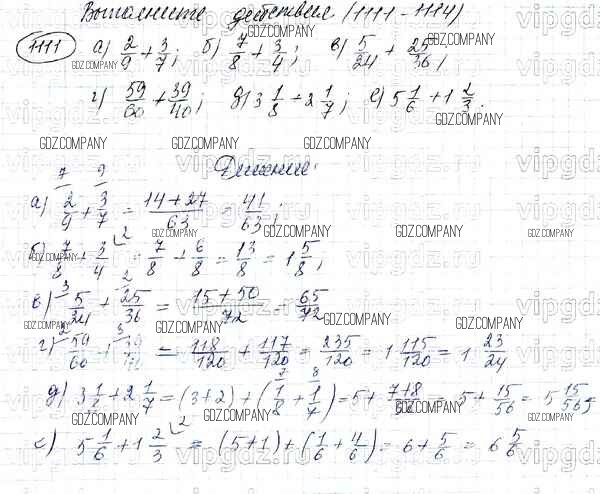 Выполните действия (1111 - 1114)
1111 а) 2/9 + 3/7; б) 7/8 + 3/4; в) 5/24 + 25/36;
г) 59/60 + 39/40; д) 3 1/8 + 2 1/7; е) 5 1/6 + 1 2/3.
Решение:
7 9
а) 2/9 + 3/7 = (14+27)/63 = 41/63;
б) 7/8 + 3/4 ⌊2 = 7/8 + 6/8 = 13/8 = 1 5/8;
в) 3 5/24 + 2 25/36 = (15+50)/72 = 65/72
г) 2 59/60 + 3 39/40 = 118/120 + 117/120 = 235/120 = 1 115/120 = 1 23/24
д) 3 1/8 + 2 1/7 = (3+2) + (7 1/8 + 8 1/7) = 5 + (7+8)/56 = 5 + 15/56 = 5 15/56;
е) 5 1/6 + 1 2/3 ⌊2 = (5+1) + (1/6 + 4/6) = 6 + 5/6 = 6 5/6
GDZ.COMPANY
vipgdz.ru